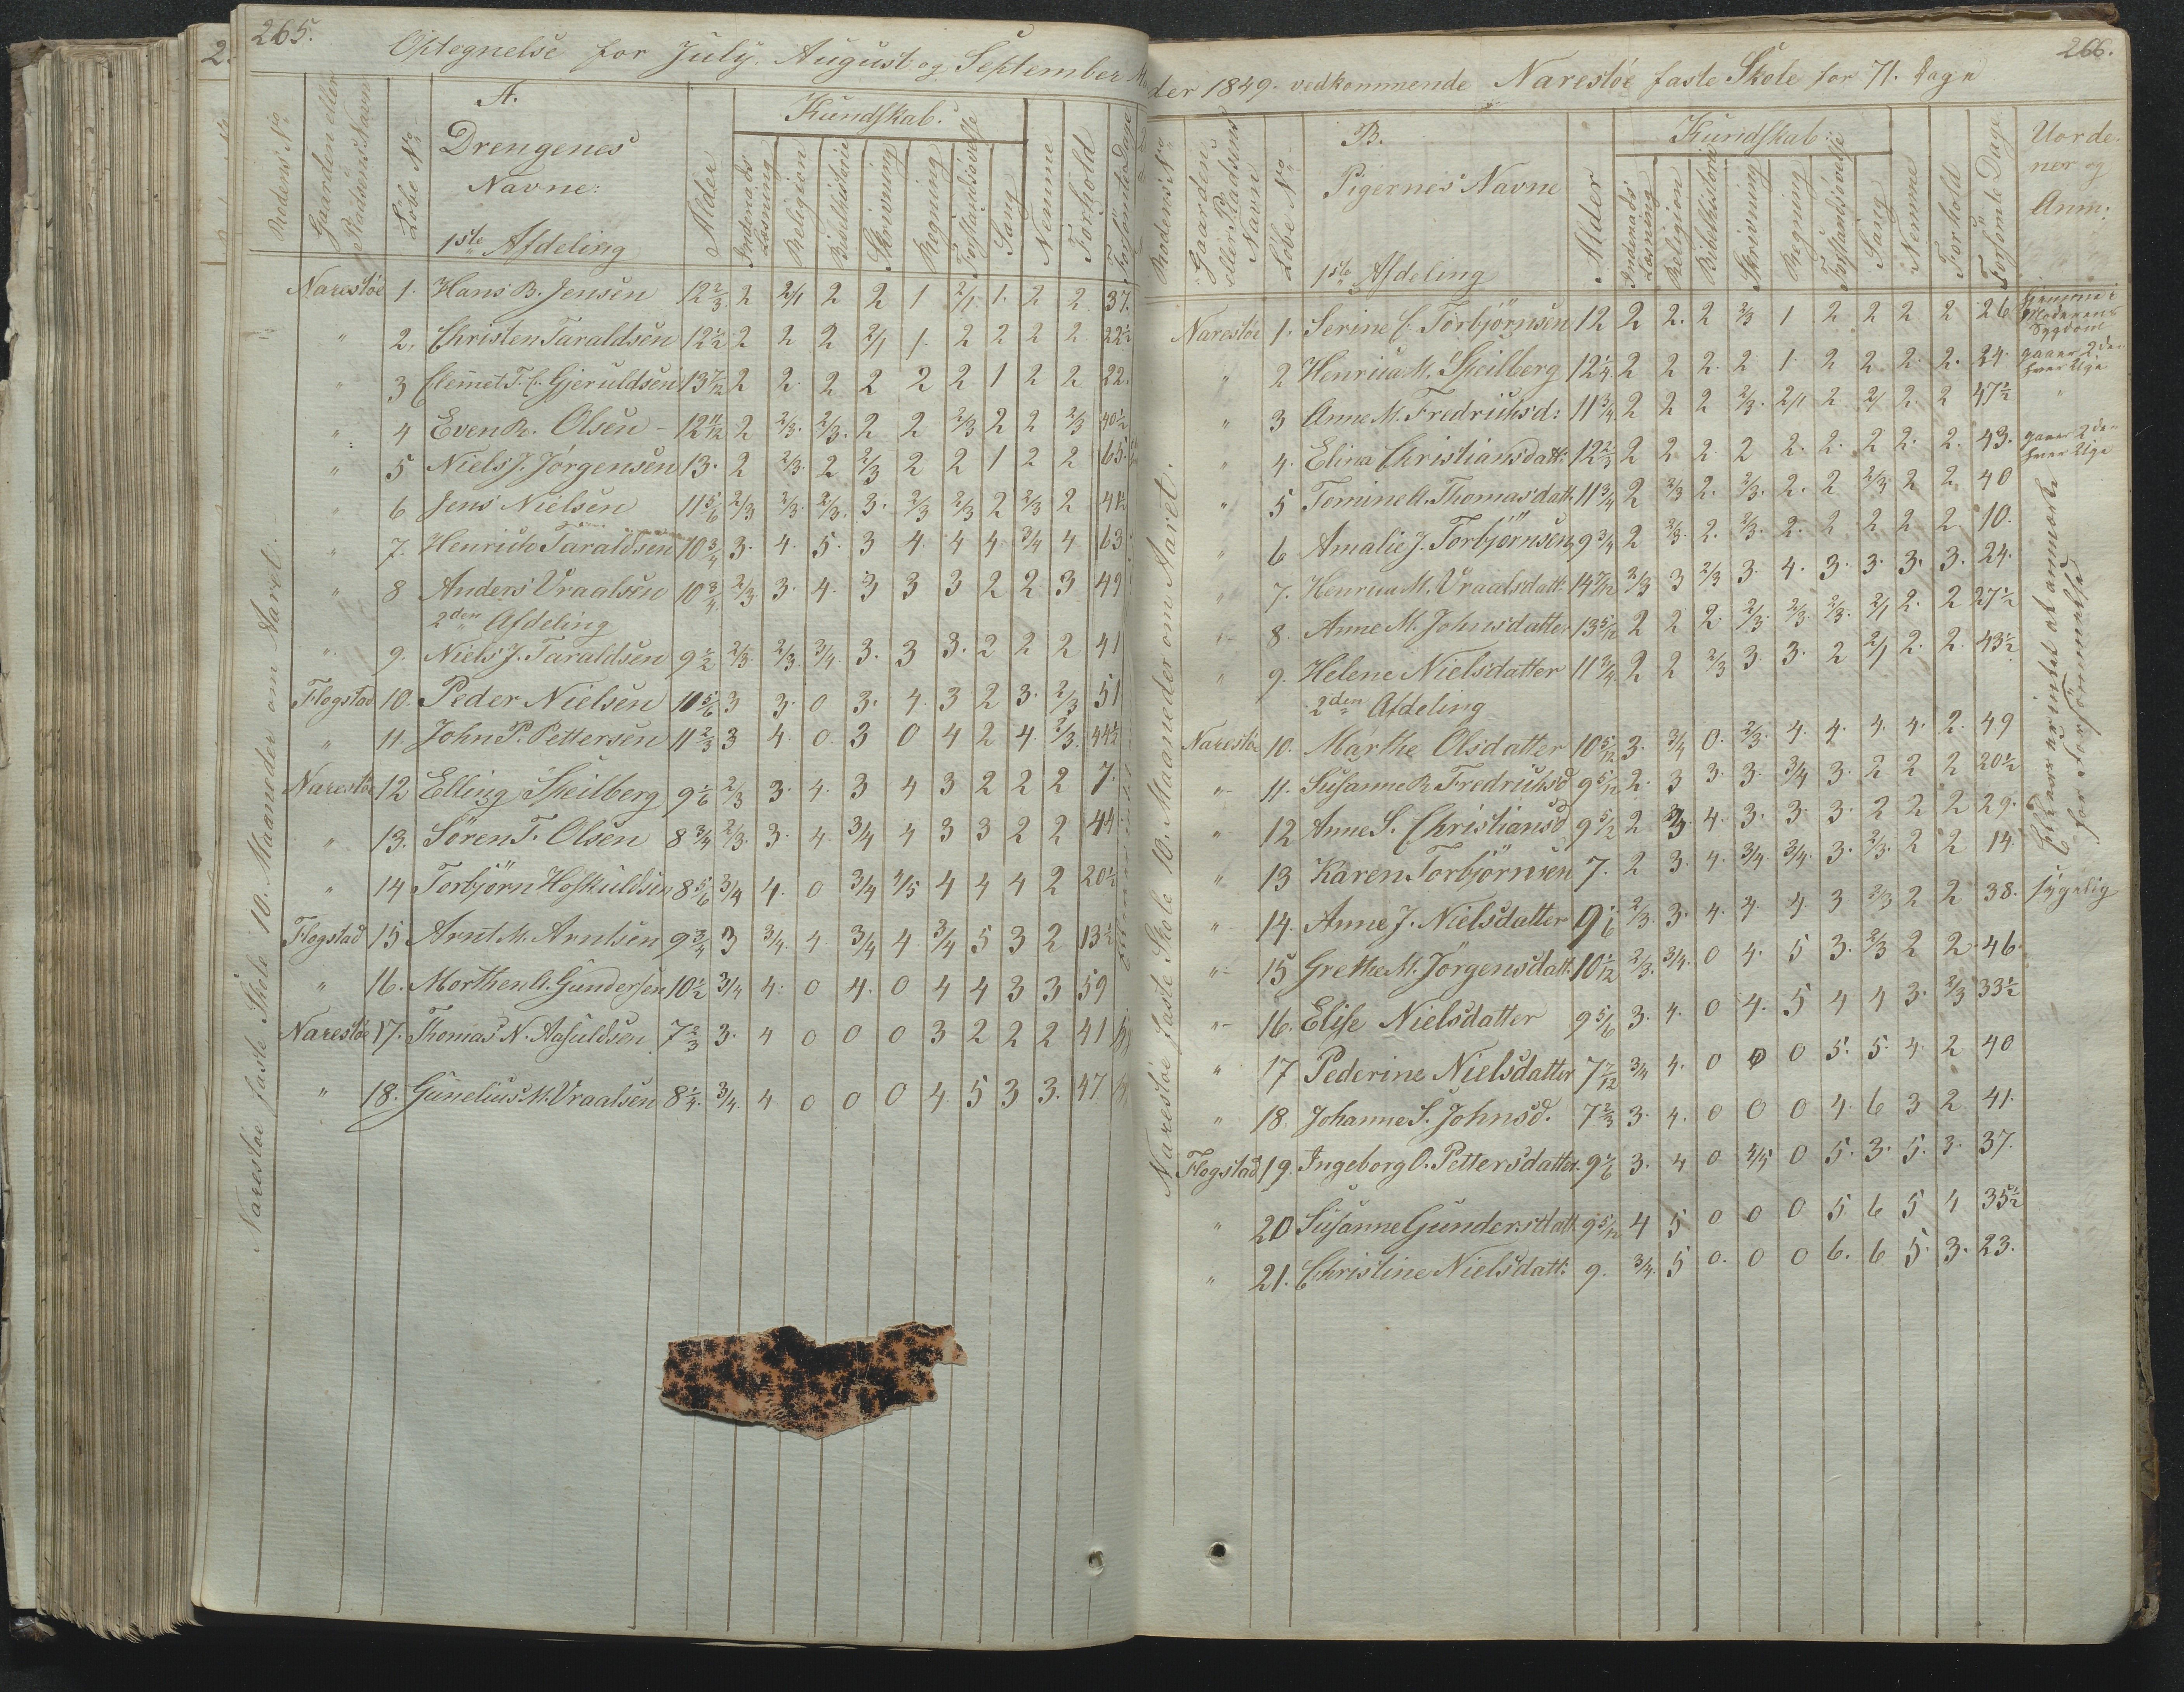 265.
Optegnelse for July, August og September Ma
Rodens No
Gaarden eller Pladsens Navn
Löbe No
A. Drengenes Navne:
1ste Afdeling
Alder
Kundskab.
Indenads Læsning
Religion
Bibelhistorie
Skrivning
Regning
Forstandsövelse
Sang
Nemme
Forhold
Forsömte Dage
Narestöe faste Skole 10. Maaneder om Aaret.
Narestöe 1. Hans B. Jensen 12 2/3 2 2/1 2 2 1 2/1 1. 2 2 37.
" 2. Christen Taraldsen 12 1/2 2 2 2 2/1 1. 2 2 2 2 22 1/2
" 3 Clemet T. C. Gjeruldsen 13 7/12 2 2 2 2 2 2 1 2 2 22.
" 4 Even R. Olsen - 12 11/12 2 2/3. 2/3. 2 2 2/3 2 2 2/3 40 1/2
" 5 Niels J. Jörgensen 13. 2 2/3. 2 2/3 2 2 1 2 2 65.
" 6 Jens Nielsen 11 5/6 2/3 2/3. 2/3. 3. 2/3 2/3 2 2/3 2 41 1/2
" 7. Henrich Taraldsen 10 3/4 3. 4. 5. 3 4. 4 4 3/4 4 63
" 8 Anders Vraalsen 10 3/4. 2/3. 3. 4. 3 3 3 2 2 3 49
2den Afdeling
" 9. Niels J. Taraldsen 9 1/2 2/3. 2/3. 3/4. 3. 3 3. 2 2 2 41
Flogstad 10. Peder Nielsen 10 5/6 3 3. 0 3. 4. 3 2 3. 2/3 51
" 11. John P. Pettersen 11 2/3 3 4. 0. 3 0 4 2 4. 2/3. 44 1/2
Narestöe 12 Elling Skeilberg 9 1/6 2/3 3. 4. 3 4 3 2 2 2 7.
" 13. Sören T. Olsen 8 3/4 2/3. 3. 4. 3/4 4 3 3 2 2 44
" 14 Torbjörn Hoskuldsen 8 5/6 3/4 4. 0 3/4 4/5 4 4 4 2 20 1/2
Flogstad 15 Arnt M. Arntsen 9 3/4 3 3/4. 4. 3/4 4. 3/4 5 3 2 13 1/2
" 16. Morthen A. Gundersen 10 1/2 3/4 4. 0 4. 0 4 4 3 3 59
Narestöe 17. Thomas N. Aasuldsen 7 2/3 3. 4 0 0 0 3 2 2 2 41
" 18. Gunelius M. Vraalsen 8 1/4. 3/4. 4 0 0 0 4. 5 3 3. 47
266.
der 1849. vedkommende Narestöe faste Skole for 71. Dage
Rodens No
Gaardens eller Pladsens Navn
Löbe No
B.
Pigernes Navne
1ste Afdeling
Alder
Kundskab:
Indenads Læsning
Religion
Bibelhistorie
Skrivning
Regning
Forstandsövelse
Sang
Nemme
Forhold
Forsömte Dage
Uordener og Anm:
Narestöe faste Skole 10. Maaneder om Aaret.
Narestöe 1. Serine C. Torbjörnsen 12 2 2. 2 2/3 1 2 2 2 2 26 hjemme i Moderens Sygdom
" 2 Henrica M. Skeilberg 12 1/4. 2 2 2. 2 1. 2 2 2. 2. 24. gaaer 2 Da: hver Uge
" 3 Anne M. Fredriksd: 11 3/4 2 2 2 2/3. 2/1 2 2/1 2. 2 47 1/2 "
" 4. Elina Christiansdatt: 12 2/3 2 2 2 2 2. 2. 2 2. 2. 43. gaaer 2 Da: hver Uge
" 5 Tomine A. Thomasdatt 11 3/4 2 2/3 2. 2/3. 2. 2 2/3 2 2 40
" 6 Amalie J. Torbjörnsen 9 3/4 2 2/3. 2. 2/3. 2. 2 2 2 2 10.
" 7. Henrica M. Vraalsdatt: 14 7/12 2/3 3 2/3 3. 4. 3. 3. 3. 3. 24.
" 8. Anne M. Johnsdatter 13 5/12 2 2 2. 2/3. 2/3. 2/3. 2/1 2. 2 27 1/2
" 9. Helene Nielsdatter 11 3/4 2 2 2/3 3. 3. 2 2/1 2. 2. 43 1/2
2den Afdeling
Narestöe 10. Marthe Olsdatter 10 5/12 3. 3/4 0. 2/3. 4. 4. 4. 4. 2. 49
" 11. Susanne R. Fredriksd 9 5/12 2. 3 3. 3. 3/4 3. 2 2 2 20 1/2
" 12 Anne S. Christiansd 9 5/12 2 3. 4. 3. 3. 3. 2 2 2 29.
" 13 Karen Torbjörnsen 7. 2 3. 4. 3/4 3/4. 3. 2/3. 2 2 14.
" 14. Anne J. Nielsdatter 9 1/6 2/3. 3. 4. 4. 4. 3 2/3 2 2 38. sygelig
" 15 Grethe M. Jörgensdatt: 10 1/12 2/3. 3/4. 0 4. 5 3. 2/3 2 2 46.
" 16. Elise Nielsdatter 9 5/6 3. 4. 0 4. 5 4 4 3. 2/3 33 1/2
" 17 Pederine Nielsdatter 7 7/12 3/4 4. 0 0 0 5. 5. 4. 2 40
" 18. Johanne S. Johnsd. 7 2/3 3. 4. 0 0 0 4. 6 3 2 41.
Flogstad 19. Ingeborg O. Pettersdatter. 9 1/6 3. 4 0 4/5 0 5. 3. 5. 3. 37.
" 20 Susanne Gundersdatt 9 5/12 4 5 0 0 0 5. 6 5 4 35 1/2
" 21. Christine Nielsdatt: 9. 3/4. 5 0. 0 0 6. 6 5. 3. 23.
Ellers er intet at anmærke
for forsömmelse